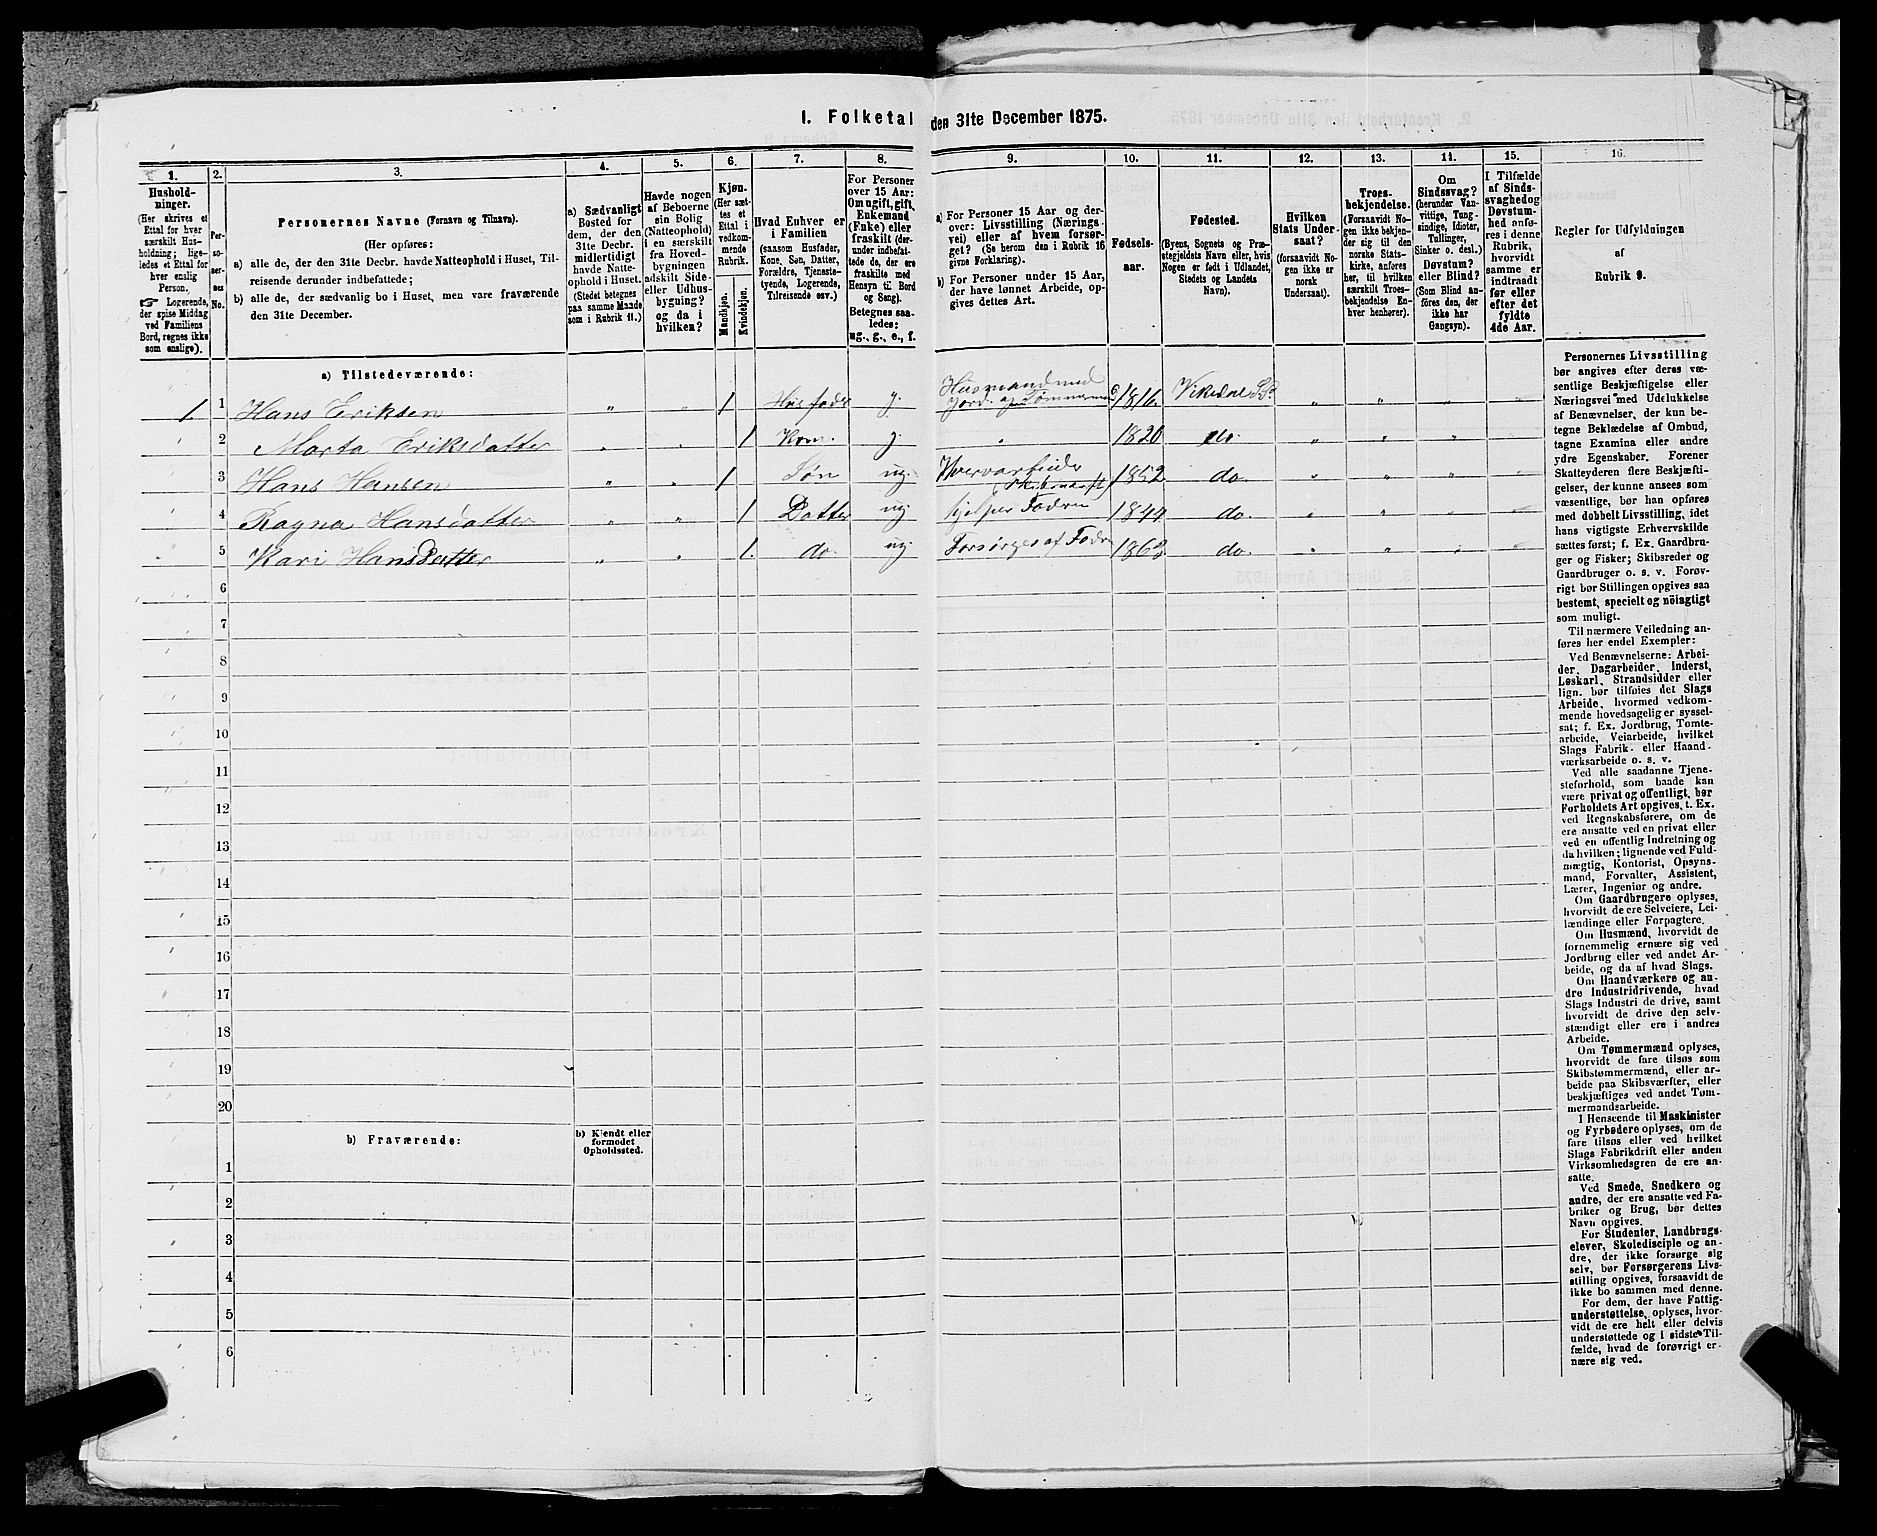 I. Folketal den 31te December 1875.
1.
2.
3.
4.
5.
6.
7.
8.
9.
10.
11.
12.
13.
14.
15.
16.
Husholdninger.
(Her skrives et
Ettal for hver
særskilt Husholdning; ligeledes et Ettal for
hver enslig
Person.
☞ Logerende,
der spise Middag
ved Familiens
Bord, regnes ikke
som enslige).
Personernes No.
Personernes Navne (Fornavn og Tilnavn).
(Her opføres:
a) alle de, der den 31te Decbr. havde Natteophold i Huset, Tilreisende derunder indbefattede;
b) alle de, der sædvanlig bo i Huset, men vare fraværende
den 31te December.
a) Sædvanligt
Bosted for
dem, der den
31te Decbr.
midlertidigt
havde Natteophold i Huset.
(Stedet betegnes
paa samme Maade
som i Rubrik 11.)
Havde nogen
af Beboerne
sin Bolig
(Natteophold)
i en særskilt
fra Hovedbygningen
adskilt Side-
eller Udhusbygning?
og da i
hvilken?
Kjøn.
(Her sættes et
Ettal i
vedkommende
Rubrik.
Mandkjøn.
Kvindekjøn.
Hvad Enhver er
i Familien
(saasom Husfader,
Kone, Søn, Datter,
Forældre, Tjenestetyende, Logerende,
Tilreisende osv.)
For Personer
over 15 Aar:
Om ugift, gift,
Enkemand
(Enke) eller
fraskilt (derunder indbefattede de, der ere
fraskilte med
Hensyn til Bord
og Seng).
Betegnes saaledes:
ug., g., e., f.
a) For Personer 15 Aar og derover: Livsstilling (Næringsvei) eller af hvem forsørget? (Se herom den i Rubrik 16
givne Forklaring).
b) For Personer under 15 Aar,
der have lønnet Arbeide, opgives dettes Art.
Fødselsaar.
Fødested.
(Byens, Sognets og Præstegjeldets Navn eller, hvis
Nogen er født i Udlandet,
Stedets og Landets
Navn).
Hvilken
Stats Undersaat?
(forsaavidt Nogen ikke er
norsk
Undersaat).
Troesbekjendelse.
(Forsaavidt Nogen ikke bekjender sig til den
norske Statskirke, anføres
her, til hvilken
særskilt Troesbekjendelse Enhver henhører).
Om
Sindssvag?
(herunder Vanvittige, Tungsindige, Idioter,
Tullinger,
Sinker o. desl.)
Døvstum?
eller Blind?
(Som Blind anføres den, der
ikke har
Gangsyn).
I Tilfælde
af Sindssvaghed og
Døvstumhed anføres i denne
Rubrik,
hvorvidt
samme er
indtraadt
før eller
efter det
fyldte
4de Aar.
Regler for Udfyldningen
af
Rubrik 9.
a) Tilstedeværende:
1. 1 Hans Eriksen " " 1 Husfader g. Husmand med Jord og Tømmermand 1816. Vikedal " " " "
2 Marta Eriksdatter " " 1 Kone g. " 1820 do. " " "
3 Hans Hansen " " 1 Søn ug. 1852 do. " " "
4 Ragna Hansdatter " " 1 Datter ug. hjelper Fadren 1844 do. " " "
5 Kari Hansdatter " " 1. do. ug. Forsørges af Fadren 1863 do. " " "
6
7
8
9
10
11
12
13
14
15
16
17
18
19
20
b) Fraværende:
b) Kjendt eller
formodet
Opholdssted.
1
2
3
4
5
6
Personernes Livsstilling
bør angives efter deres væsentlige Beskjæftigelse eller
Næringsvei med Udelukkelse
af Benævnelser, der kun betegne Beklædelse af Ombud,
tagne Examina eller andre
ydre Egenskaber. Forener
Skatteyderen flere Beskjæftigelser, der kunne ansees som
væsentlige, bør han opføres
med dobbelt Livsstilling, idet
hans vigtigste Erhvervskilde
sættes først; f. Ex. Gaardbruger og Fisker; Skibsreder og
Gaardbruger o. s. v. Forøvrigt bør Stillingen opgives saa
bestemt, specielt og nöiagtigt
som muligt.
Til nærmere Veiledning anføres her endel Exempler:
Ved Benævnelserne: Arbeider, Dagarbeider, Inderst,
Løskarl, Strandsidder eller
lign. bør tilføies det Slags
Arbeide, hvormed vedkommende hovedsagelig er sysselsat; f. Ex. Jordbrug, Tomtearbeide, Veiarbeide, hvilket
Slags Fabrik- eller Haandværksarbeide o. s. v.
Ved alle saadanne Tjenesteforhold, som baade kan
være privat og offentligt, bør
Forholdets Art opgives, t. Ex.
ved Regnskabsførere, om de
ere ansatte ved en privat eller
ved en offentlig Indretning og
da hvilken; lignende ved Fuldmægtig, Kontorist, Opsynsmand, Forvalter, Assistent,
Lærer, Ingeniør og andre.
Om Gaardbrugere oplyses,
hvorvidt de ere Selveiere, Leilændinge eller Forpagtere.
Om Husmænd, hvorvidt de
fornemmelig ernære sig ved
Jordbrug eller ved andet Arbeide, og da af hvad Slags.
Om Haandværkere og andre Industridrivende, hvad
Slags Industri de drive, samt
hvorvidt de drive den selvstændigt eller ere i andres
Arbeide.
Om Tømmermænd oplyses,
hvorvidt de fare tilsøs som
Skibstømmermænd, eller arbeide paa Skibsværfter, eller
beskjæftiges ved andet Tømmermandsarbeide.
I Henseende til Maskinister
og Fyrbødere oplyses, om de
fare tilsøs eller ved hvilket
Slags Fabrikdrift eller anden
Virksomhedsgren de ere ansatte.
Ved Smede, Snedkere og
andre, der ere ansatte ved Fabriker og Brug, bør dettes
Navn opgives.
For Studenter, Landbrugselever, Skoledisciple og andre, der ikke forsørge sig
selv, bør Forsørgerens Livsstilling opgives, forsaavidt de
ikke bo sammen med denne.
For dem, der have Fattigunderstøttelse, oplyses, hvorvidt de ere helt eller delvis
understøttede og i sidste Tilfælde, hvad de forøvrigt ernære sig ved.